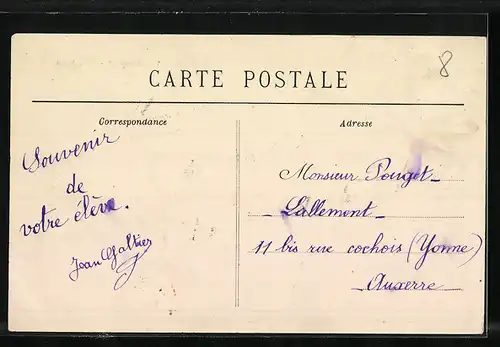 8
CARTE POSTALE
Correspondance
Adresse
Souvenir
de
votre élève.
Jean Galtier
Monsieur Pouget-
Lallement-
11 bis rue cochois (Yonne)
Auxerre